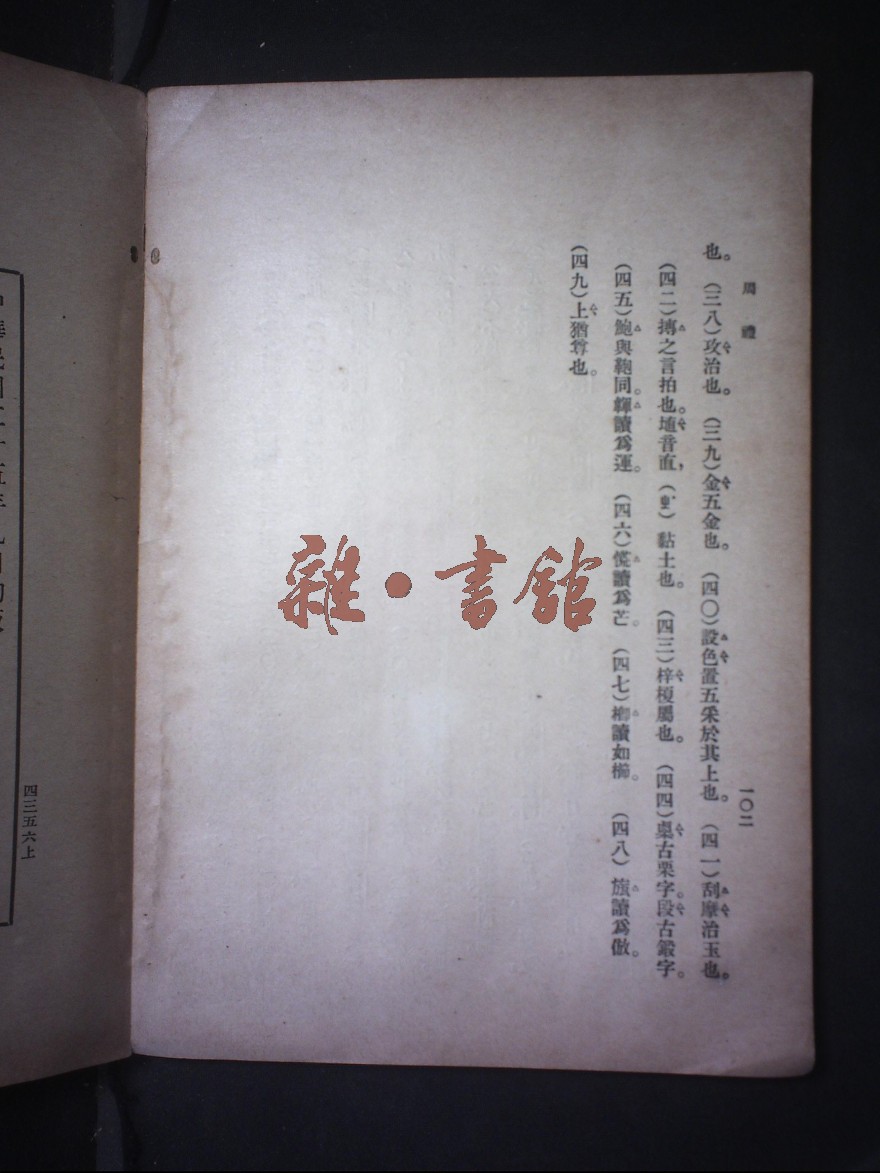 周禮 一〇二
也。（三八）攻治也。（三九）金五金也。（四〇）設色置五采於其上也。（四一）刮摩治玉也。
（四二）搏之言拍也。埴音直，黏土也。（四三）梓榎屬也。（四四）㮚古栗字。段古鍛字。
（四五）鮑與鞄同。韗讀爲運。（四六）㡆讀爲芒。（四七）楖讀如櫛。（四八）旊讀爲倣。
（四九）上猶尊也。
雜·書館
四三五六上